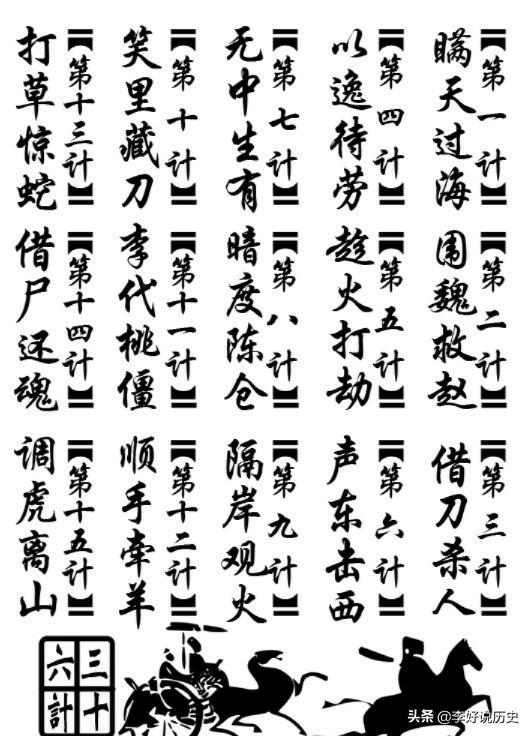 （第一计）
瞒天过海
（第二计）
围魏救赵
（第三计）
借刀杀人
（第四计）
以逸待劳
（第五计）
趁火打劫
（第六计）
声东击西
（第七计）
无中生有
（第八计）
暗度陈仓
（第九计）
隔岸观火
（第十计）
笑里藏刀
（第十一计）
李代桃僵
（第十二计）
顺手牵羊
（第十三计）
打草惊蛇
（第十四计）
借尸还魂
（第十五计）
调虎离山
三十六計
头条 @李好说历史